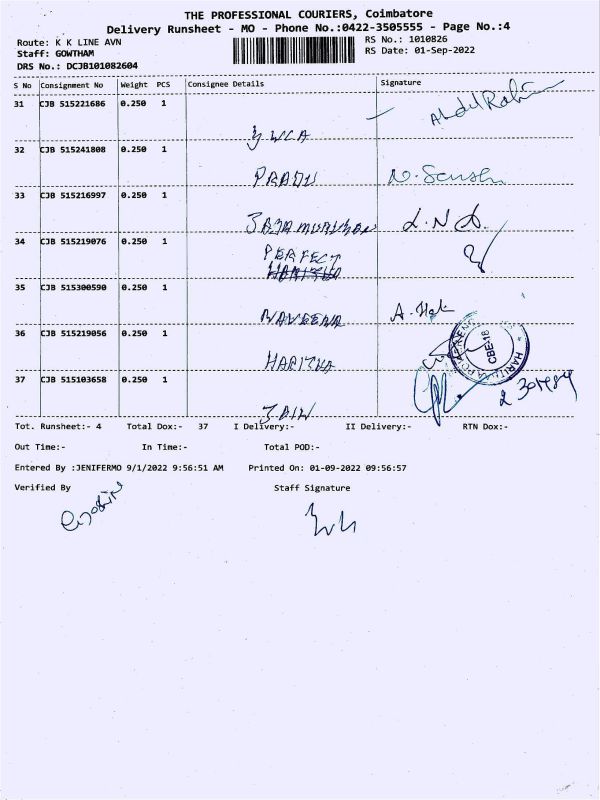 THE PROFESSIONAL COURIERS, Coimbatore
Delivery Runsheet - MO - Phone No.:0422-3505555 - Page No.:4
Route: K K LINE AVN
RS No.: 1010826
Staff: GOWTHAM
RS Date: 01-Sep-2022
DRS No.: DCJB101082604
S No Consignment No Weight PCS Consignee Details Signature
31 CJB 515221686 0.250 1
YWCA
32 CJB 515241808 0.250 1
PRABU
33 CJB 515216997 0.250 1
34 CJB 515219076 0.250 1
PERFECT
35 CJB 515300590 0.250 1
NAVEENA
36 CJB 515219056 0.250 1
HARITHA
CBE-18
37 CJB 515103658 0.250 1
JAIN
Tot. Runsheet:- 4 Total Dox:- 37 I Delivery:- II Delivery:- RTN Dox:-
Out Time:- In Time:- Total POD:-
Entered By :JENIFERMO 9/1/2022 9:56:51 AM Printed On: 01-09-2022 09:56:57
Verified By Staff Signature